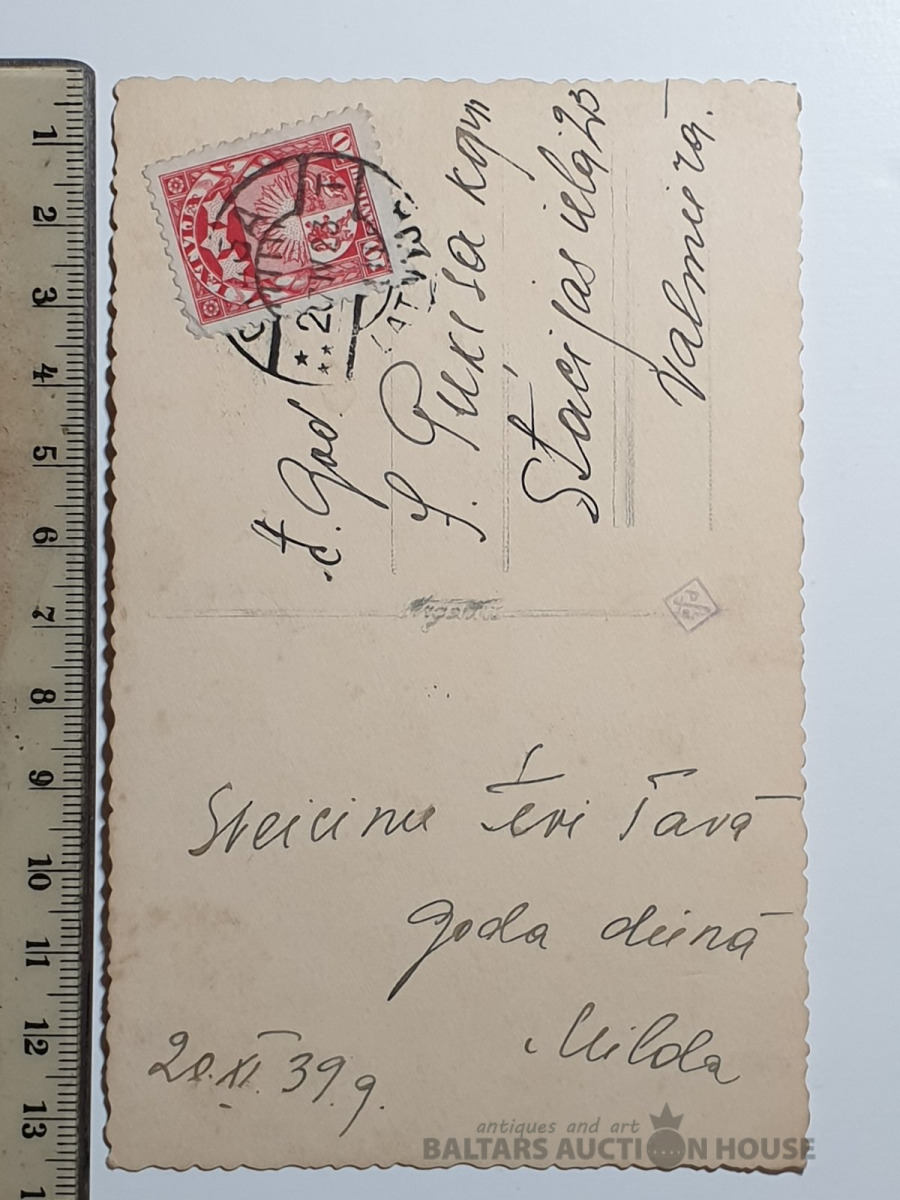 LATVIJA
God.
Stacijas ielā 23
Valmierā.
Sveicinu Tevi Tavā
goda dienā
Milda
20.XI.39.g.
1
2
3
4
5
6
7
8
9
10
11
12
13
antiques and art
BALTARS AUCTION HOUSE